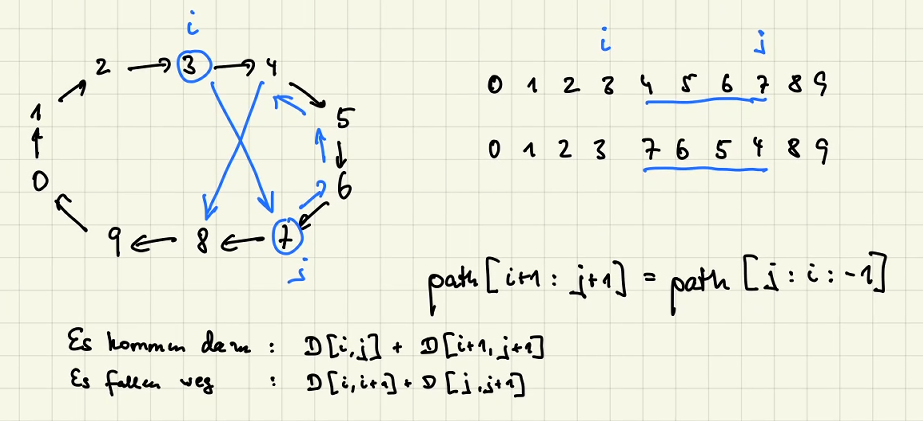 i
2 3 4
1 5
0 6
9 8 7
j
i j
0 1 2 3 4 5 6 7 8 9
0 1 2 3 7 6 5 4 8 9
path[i+1 : j+1] = path[j : i : -1]
Es kommen dazu : D[i,j] + D[i+1, j+1]
Es fallen weg : D[i,i+1] + D[j,j+1]